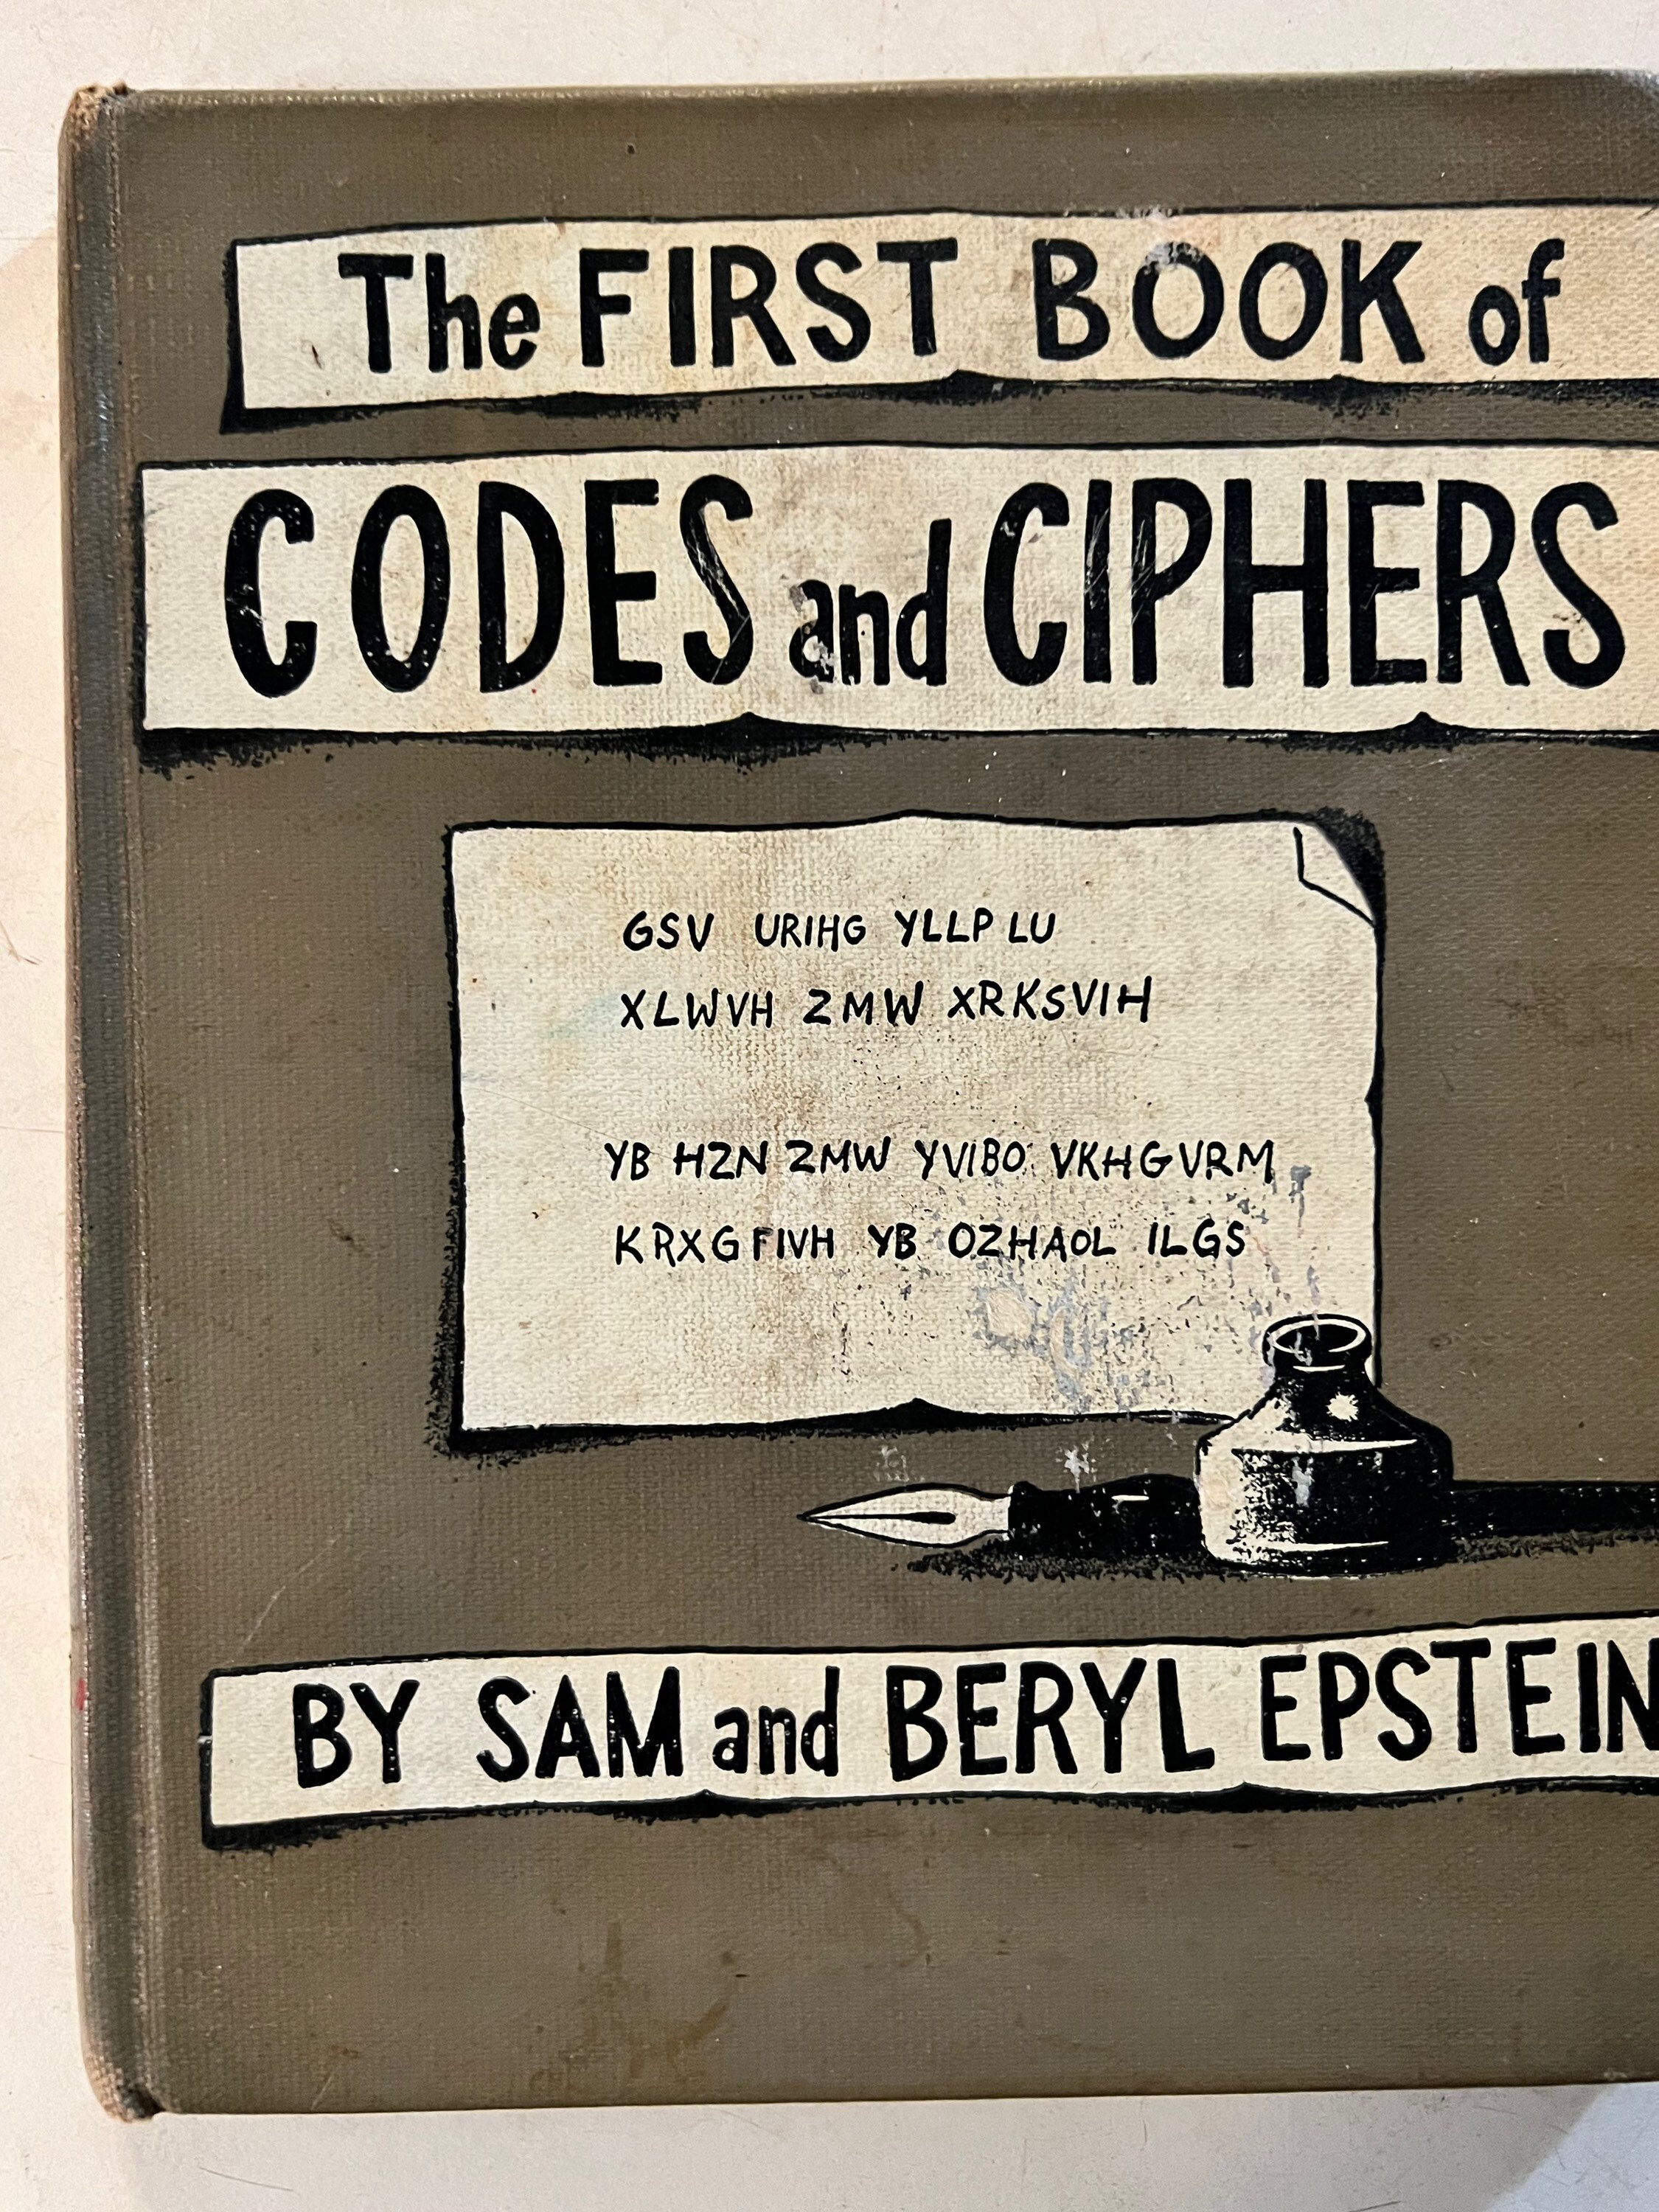 The FIRST BOOK of
CODES and CIPHERS
GSV URIHG YLLP LU
XLWVH ZMW XRKSVIH
YB HZN ZMW YVIBO VKHGVRM
KRXGFIVH YB OZHAOL ILGS
BY SAM and BERYL EPSTEIN